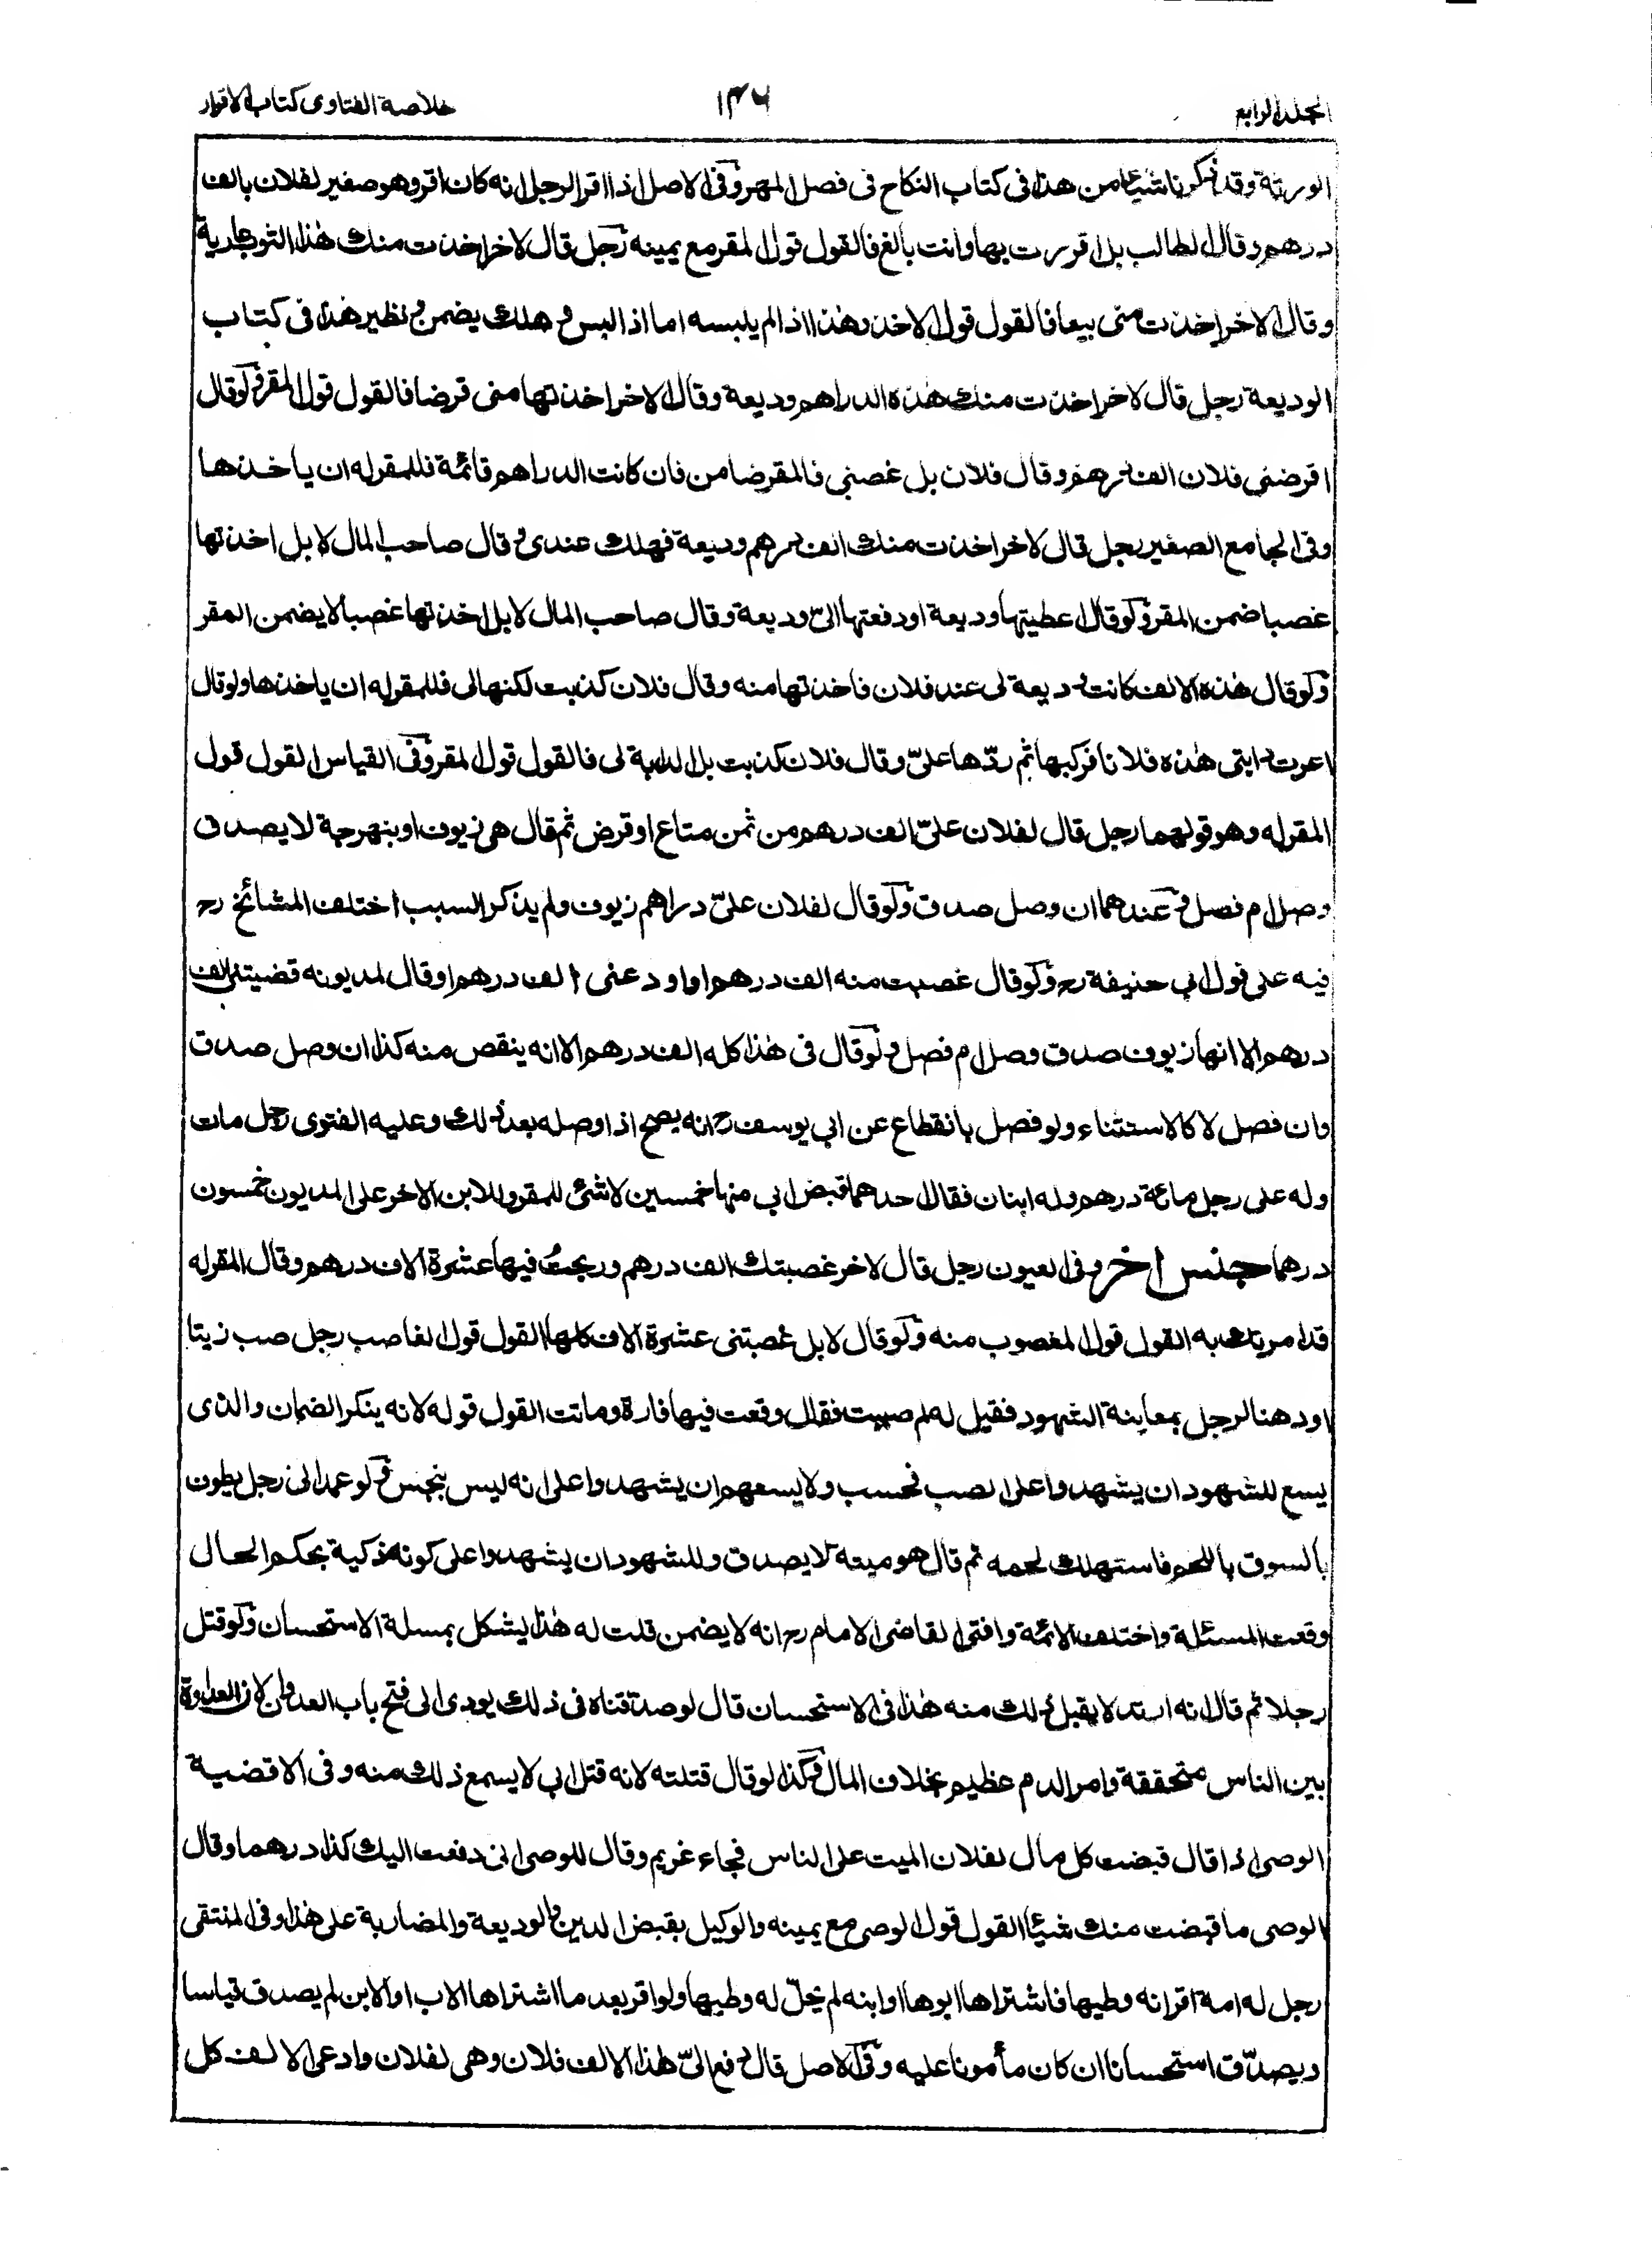 المجلد الرابع
١٣٦
خلاصة الفتاوى كتاب الاقرار
الورثة وقد ذكرنا شيئا من هذا فى كتاب النكاح فى فصل المهر وفى الاصل اذا اقر الرجل انه كان اقر وهو صغير لفلان بالف
درهم وقال الطالب بل اقررت بها وانت بالغ فالقول قول المقر مع يمينه رجل قال لاخر اخذت منك هذا الثوب عارية
وقال الاخر اخذت منى بيعا فالقول قول الاخذ وهذا اذا لم يلبسه اما اذا لبس و هلك يضمن و نظير هذا فى كتاب
الوديعة رجل قال لاخر اخذت منك هذه الدراهم وديعة وقال الاخر اخذتها منى قرضا فالقول قول المقر ولو قال
اقرضنى فلان الف درهم وقال فلان بل غصبنى فالمقر ضامن فان كانت الدراهم قائمة فللمقر له ان ياخذها
وفى الجامع الصغير رجل قال لاخر اخذت منك الف درهم وديعة فهلك عندى و قال صاحب المال لا بل اخذتها
غصبا ضمن المقر ولو قال اعطيتها وديعة او دفعتها الىّ وديعة وقال صاحب المال لا بل اخذتها غصبا لا يضمن المقر
ولو قال هذه الالف كانت وديعة لى عند فلان فاخذتها منه وقال فلان كذبت لكنها لى فللمقر له ان ياخذها ولو قال
اعرت دابتى هذه فلانا فركبها ثم ردّها علىّ وقال فلان كذبت بل الدابة لى فالقول قول المقر وفى القياس القول قول
المقر له وهو قولهما رجل قال لفلان علىّ الف درهم من ثمن متاع او قرض ثم قال هى زيوف او بنهرجة لا يصدق
وصل ام فصل و عندهما ان وصل صدق ولو قال لفلان علىّ دراهم زيوف ولم يذكر السبب اختلف المشائخ رح
فيه على قول ابى حنيفة رح ولو قال غصبت منه الف درهم او اودعنى الف درهم او قال لمديونه قضيتنى الف
درهم الا انها زيوف صدق وصل ام فصل و لو قال فى هذا كله الف درهم الا انه ينقص منه كذا ان وصل صدق
وان فصل لا كالاستثناء ولو فصل بانقطاع عن ابى يوسف رح انه يصح اذا وصله بعد ذلك وعليه الفتوى رجل مات
وله على رجل مائة درهم وله ابنان فقال احدهما قبض ابى منها خمسين لا شئ للمقر وللابن الاخر على المديون خمسون
درهما جنس اخر وفى العيون رجل قال لاخر غصبتك الف درهم وربحت فيها عشرة الاف درهم وقال المقر له
قد امرتك به القول قول المغصوب منه ولو قال لا بل غصبتنى عشرة الاف كلها القول قول الغاصب رجل صب زيتا
او دهنا لرجل بمعاينة الشهود فقيل له لم صببت فقال وقعت فيها فارة وماتت القول قوله لانه ينكر الضمان والذى
يسع للشهود ان يشهدوا على الصب فحسب ولا يسعهم ان يشهدوا على انه ليس بنجس و لو عمد الى رجل يطوف
بالسوق باللحم فاستهلك لحمه ثم قال هو ميتة لا يصدق وللشهود ان يشهدوا على كونه ذكية بحكم الحال
وقعت المسئلة واختلف الائمة وافتى القاضى الامام رح انه لا يضمن قلت له هذا يشكل بمسلة الاستحسان ولو قتل
رجلا ثم قال انه ارتد لا يقبل ذلك منه هذا فى الاستحسان قال لو صدقناه فى ذلك يودى الى فتح باب العدوان لان العداوة
بين الناس متحققة وامر الدم عظيم بخلاف المال وكذا لو قال قتلته لانه قتل ابى لا يسمع ذلك منه وفى الاقضية
الوصى اذا قال قبضت كل مال لفلان الميت على الناس فجاء غريم وقال للوصى انى دفعت اليك كذا درهما وقال
الوصى ما قبضت منك شيئا القول قول الوصى مع يمينه والوكيل بقبض الدين والوديعة والمضاربة على هذا وفى المنتقى
رجل له امة اقر انه وطيها فاشتراها ابوها او ابنه لم يحلّ له وطيها ولو اقر بعد ما اشتراها الاب او الابن لم يصدق قياسا
ويصدّق استحسانا ان كان مأمونا عليه وفى الاصل قال دفع الىّ هذا الالف فلان وهى لفلان وادعى الالف كل